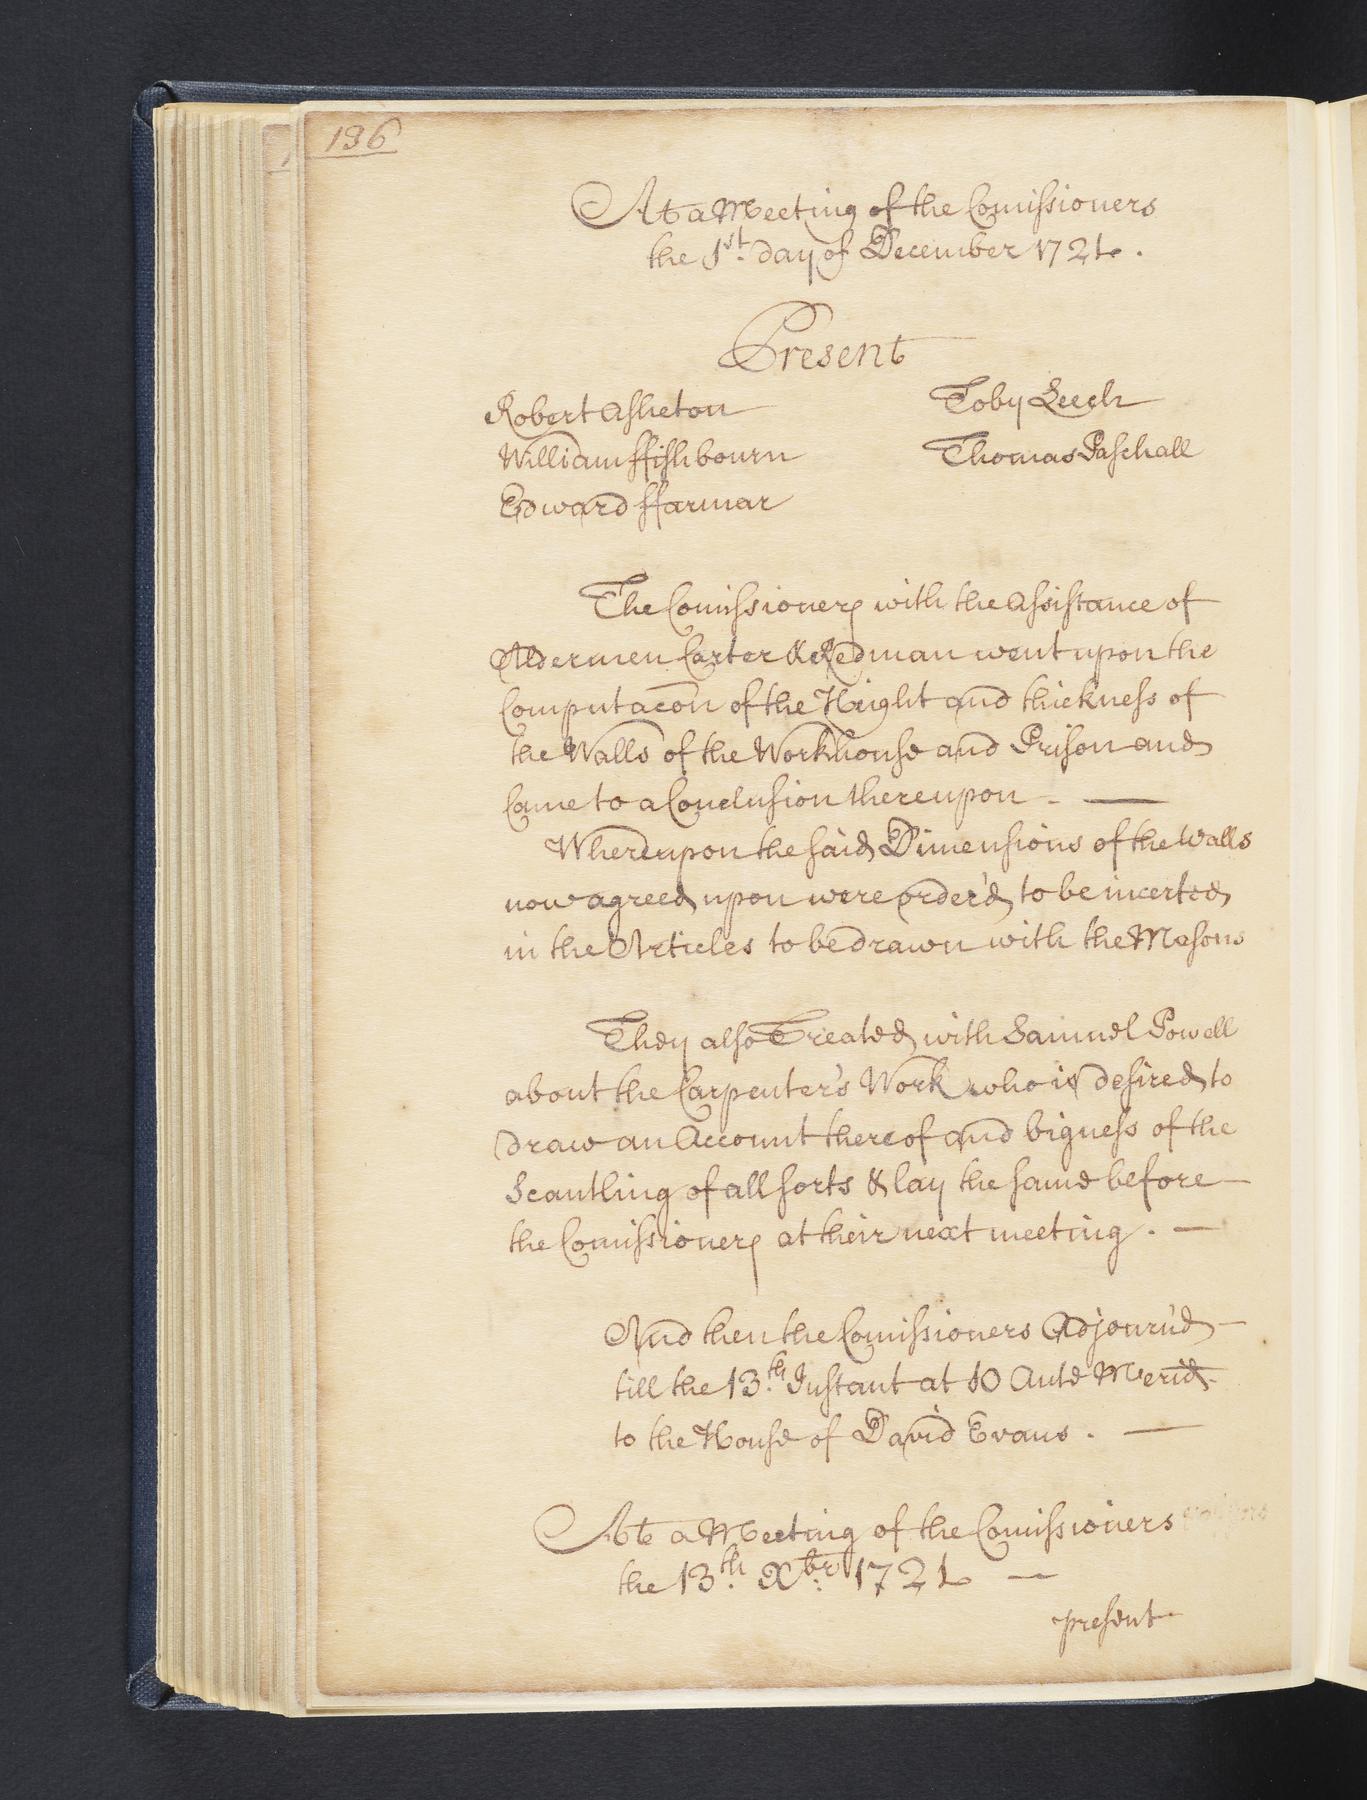 136
At a Meeting of the Comissioners
the 1st. day of December 1721.
Present
Robert Asheton
William ffishbourn
Edward ffarmar
Toby Leech
Thomas Paschall
The Comissioners with the Assistance of
Aldermen Carter & Redman went upon the
Computacon of the Height and thickness of
the Walls of the Workhouse and Prison and
Came to a Conclusion thereupon. —
Whereupon the said Dimensions of the Walls
now agreed upon were order'd to be incerted
in the Articles to be drawn with the Masons
They also Treated with Samuel Powell
about the Carpenter's Work who is desired to
draw an Account thereof and bigness of the
Scantling of all sorts & lay the same before —
the Comissioners at their next meeting. —
And then the Comissioners Adjourn'd —
till the 13.th Instant at 10 Ante Merid.
to the House of David Evans. —
At a Meeting of the Comissioners
the 13.th Xbr: 1721 —
present